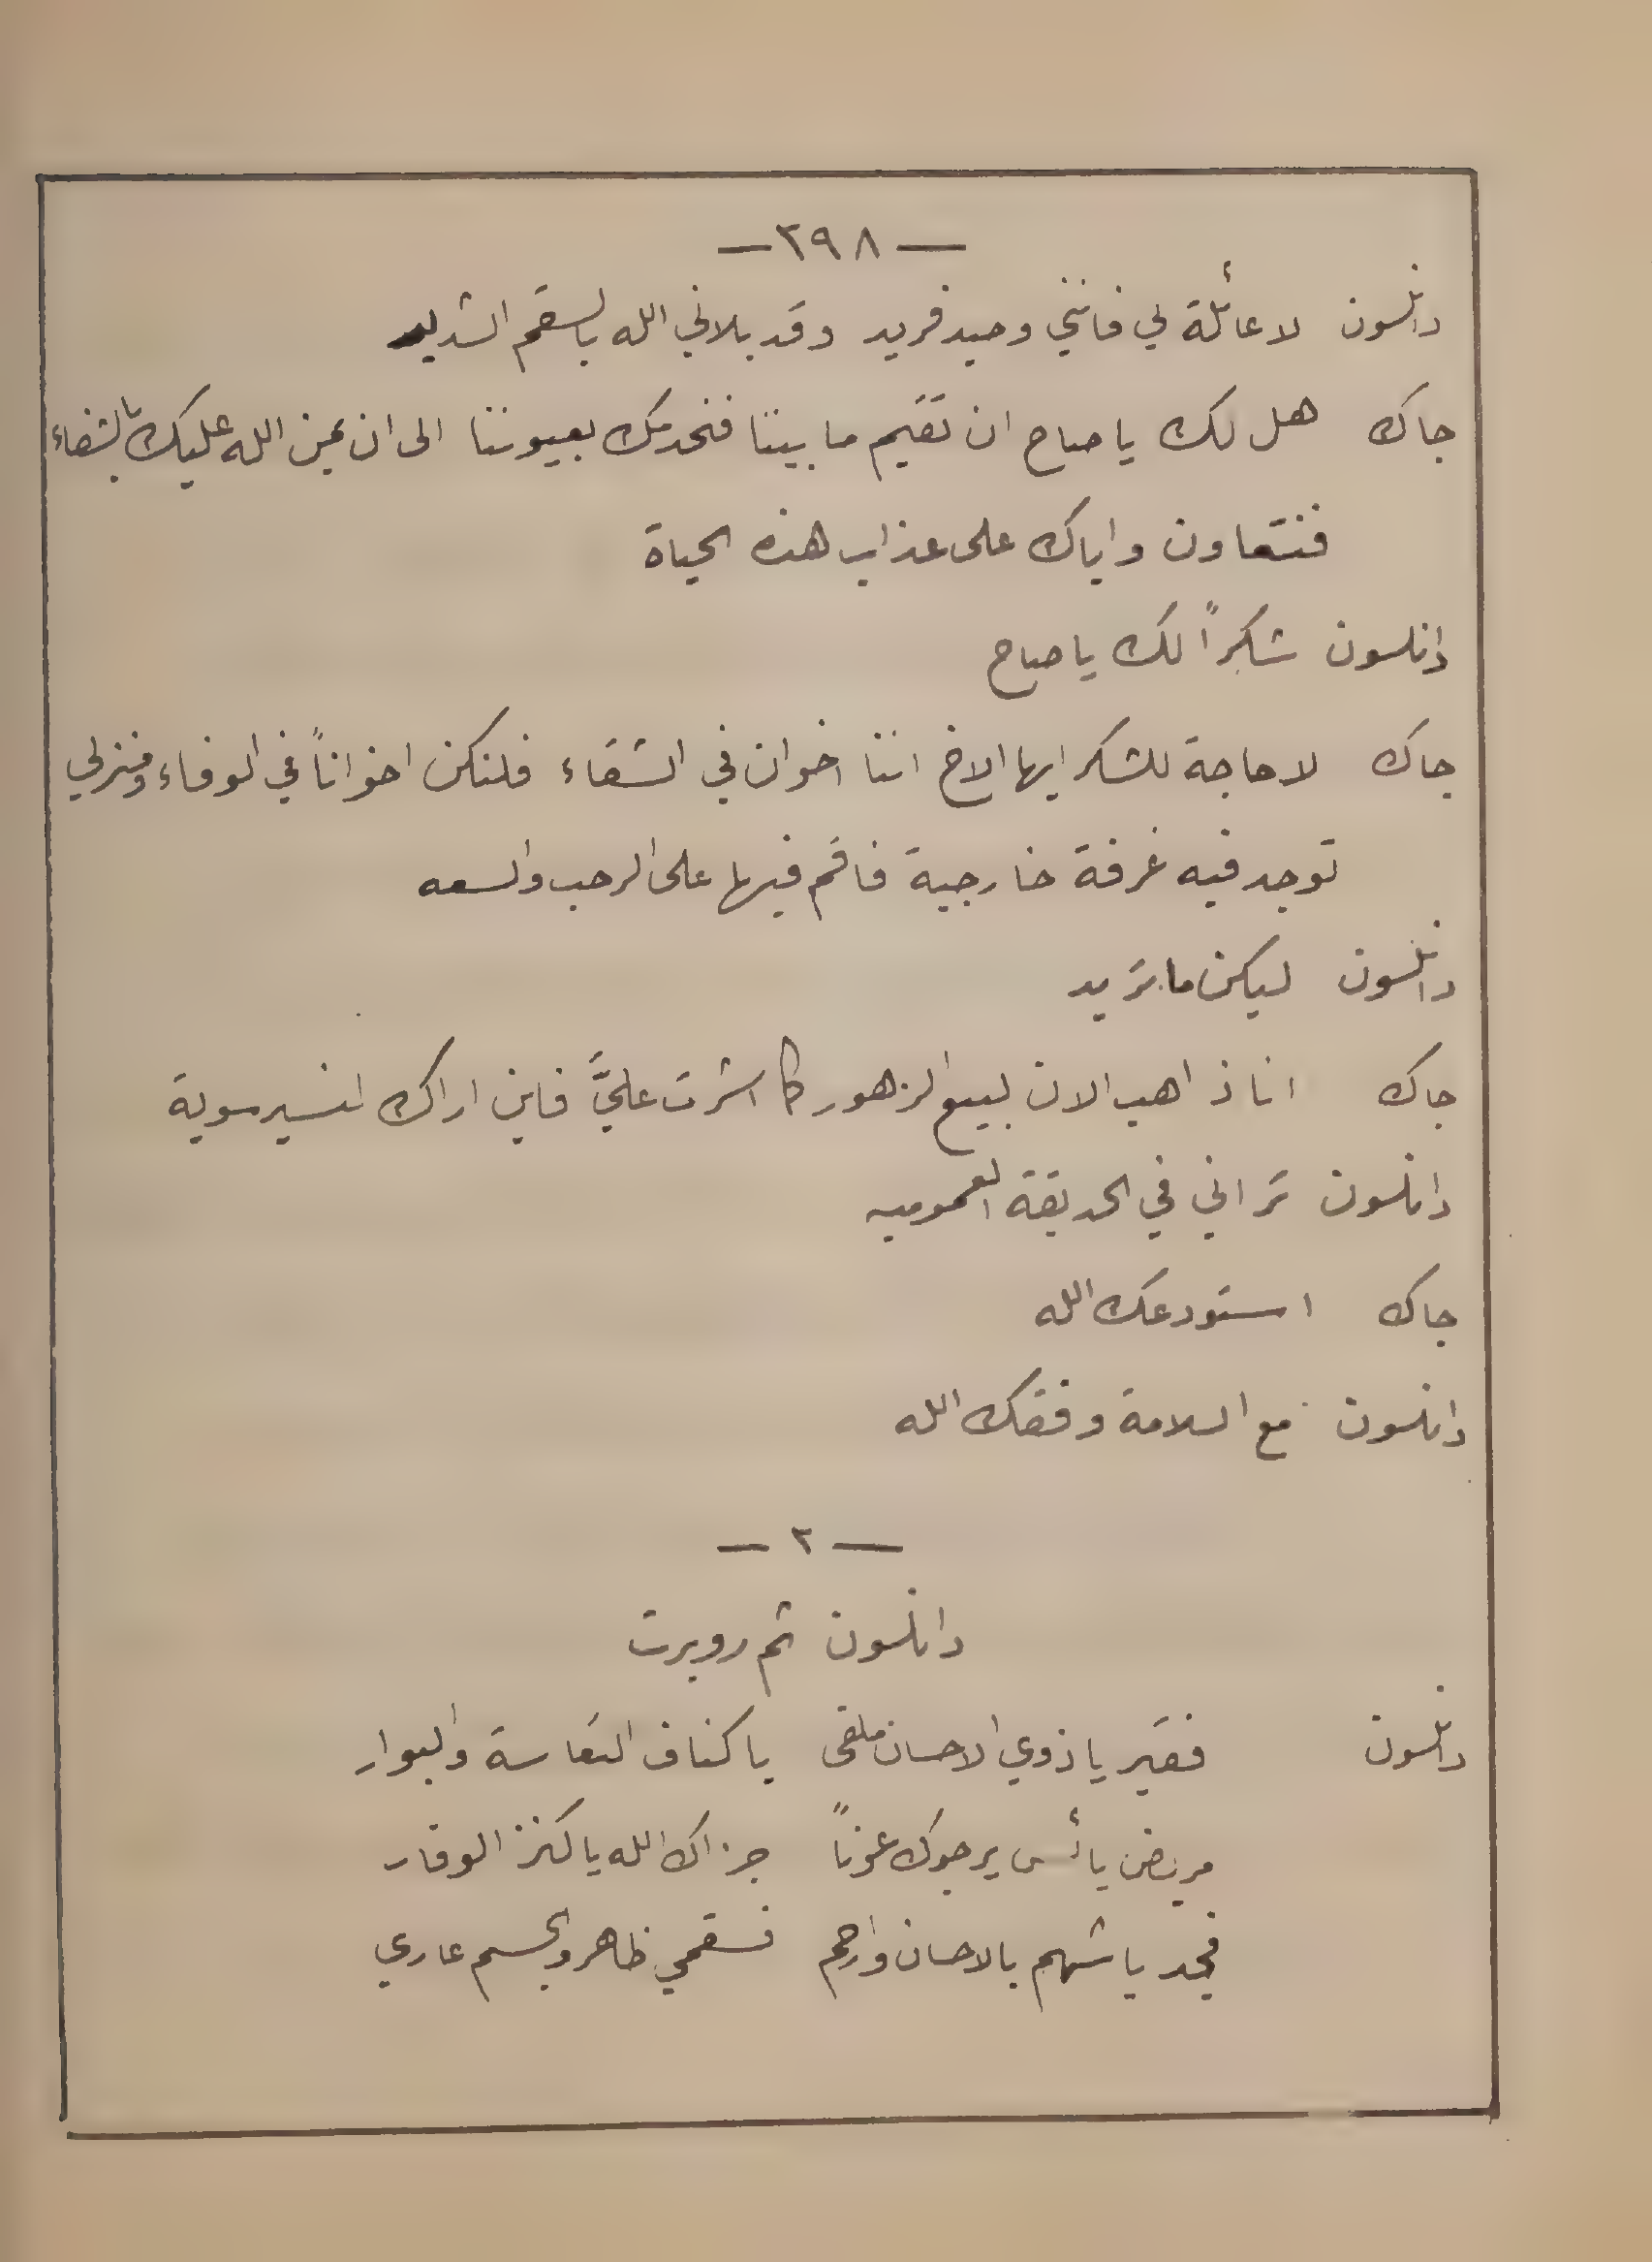 — ٢٩٨ —
دانلسون لا عائلة لي فانني وحيد فريد وقد بلاني الله بالسقم الشديد
جاك هل لك يا صاح ان تقيم ما بيننا فنخدمك بعيوننا الى ان يمن الله عليك بالشفاء
فنتعاون واياك على عذاب هذه الحياة
دانلسون شكراً لك يا صاح
جاك لا حاجة للشكر ايها الاخ اننا اخوان في الشقاء فلنكن اخواناً في الوفاء ومنزلي
توجد فيه غرفة خارجية فاقم فيها على الرحب والسعه
دانلسون ليكن ما تريد
جاك انا ذاهب الان لبيع الزهور كما اشرت عليَّ فاين اراك لنسير سوية
دانلسون تراني في الحديقة العموميه
جاك استودعك الله
دانلسون مع السلامة وفقك الله
— ٢ —
دانلسون ثم روبرت
دانلسون فقير يا ذوي الاحسان ملقى باكناف التعاسة والبوار
مريض يائس يرجوك عوناً جزاك الله يا كنز الوقار
فجد يا شهم بالاحسان وارحم فسقمي ظاهر والجسم عاري